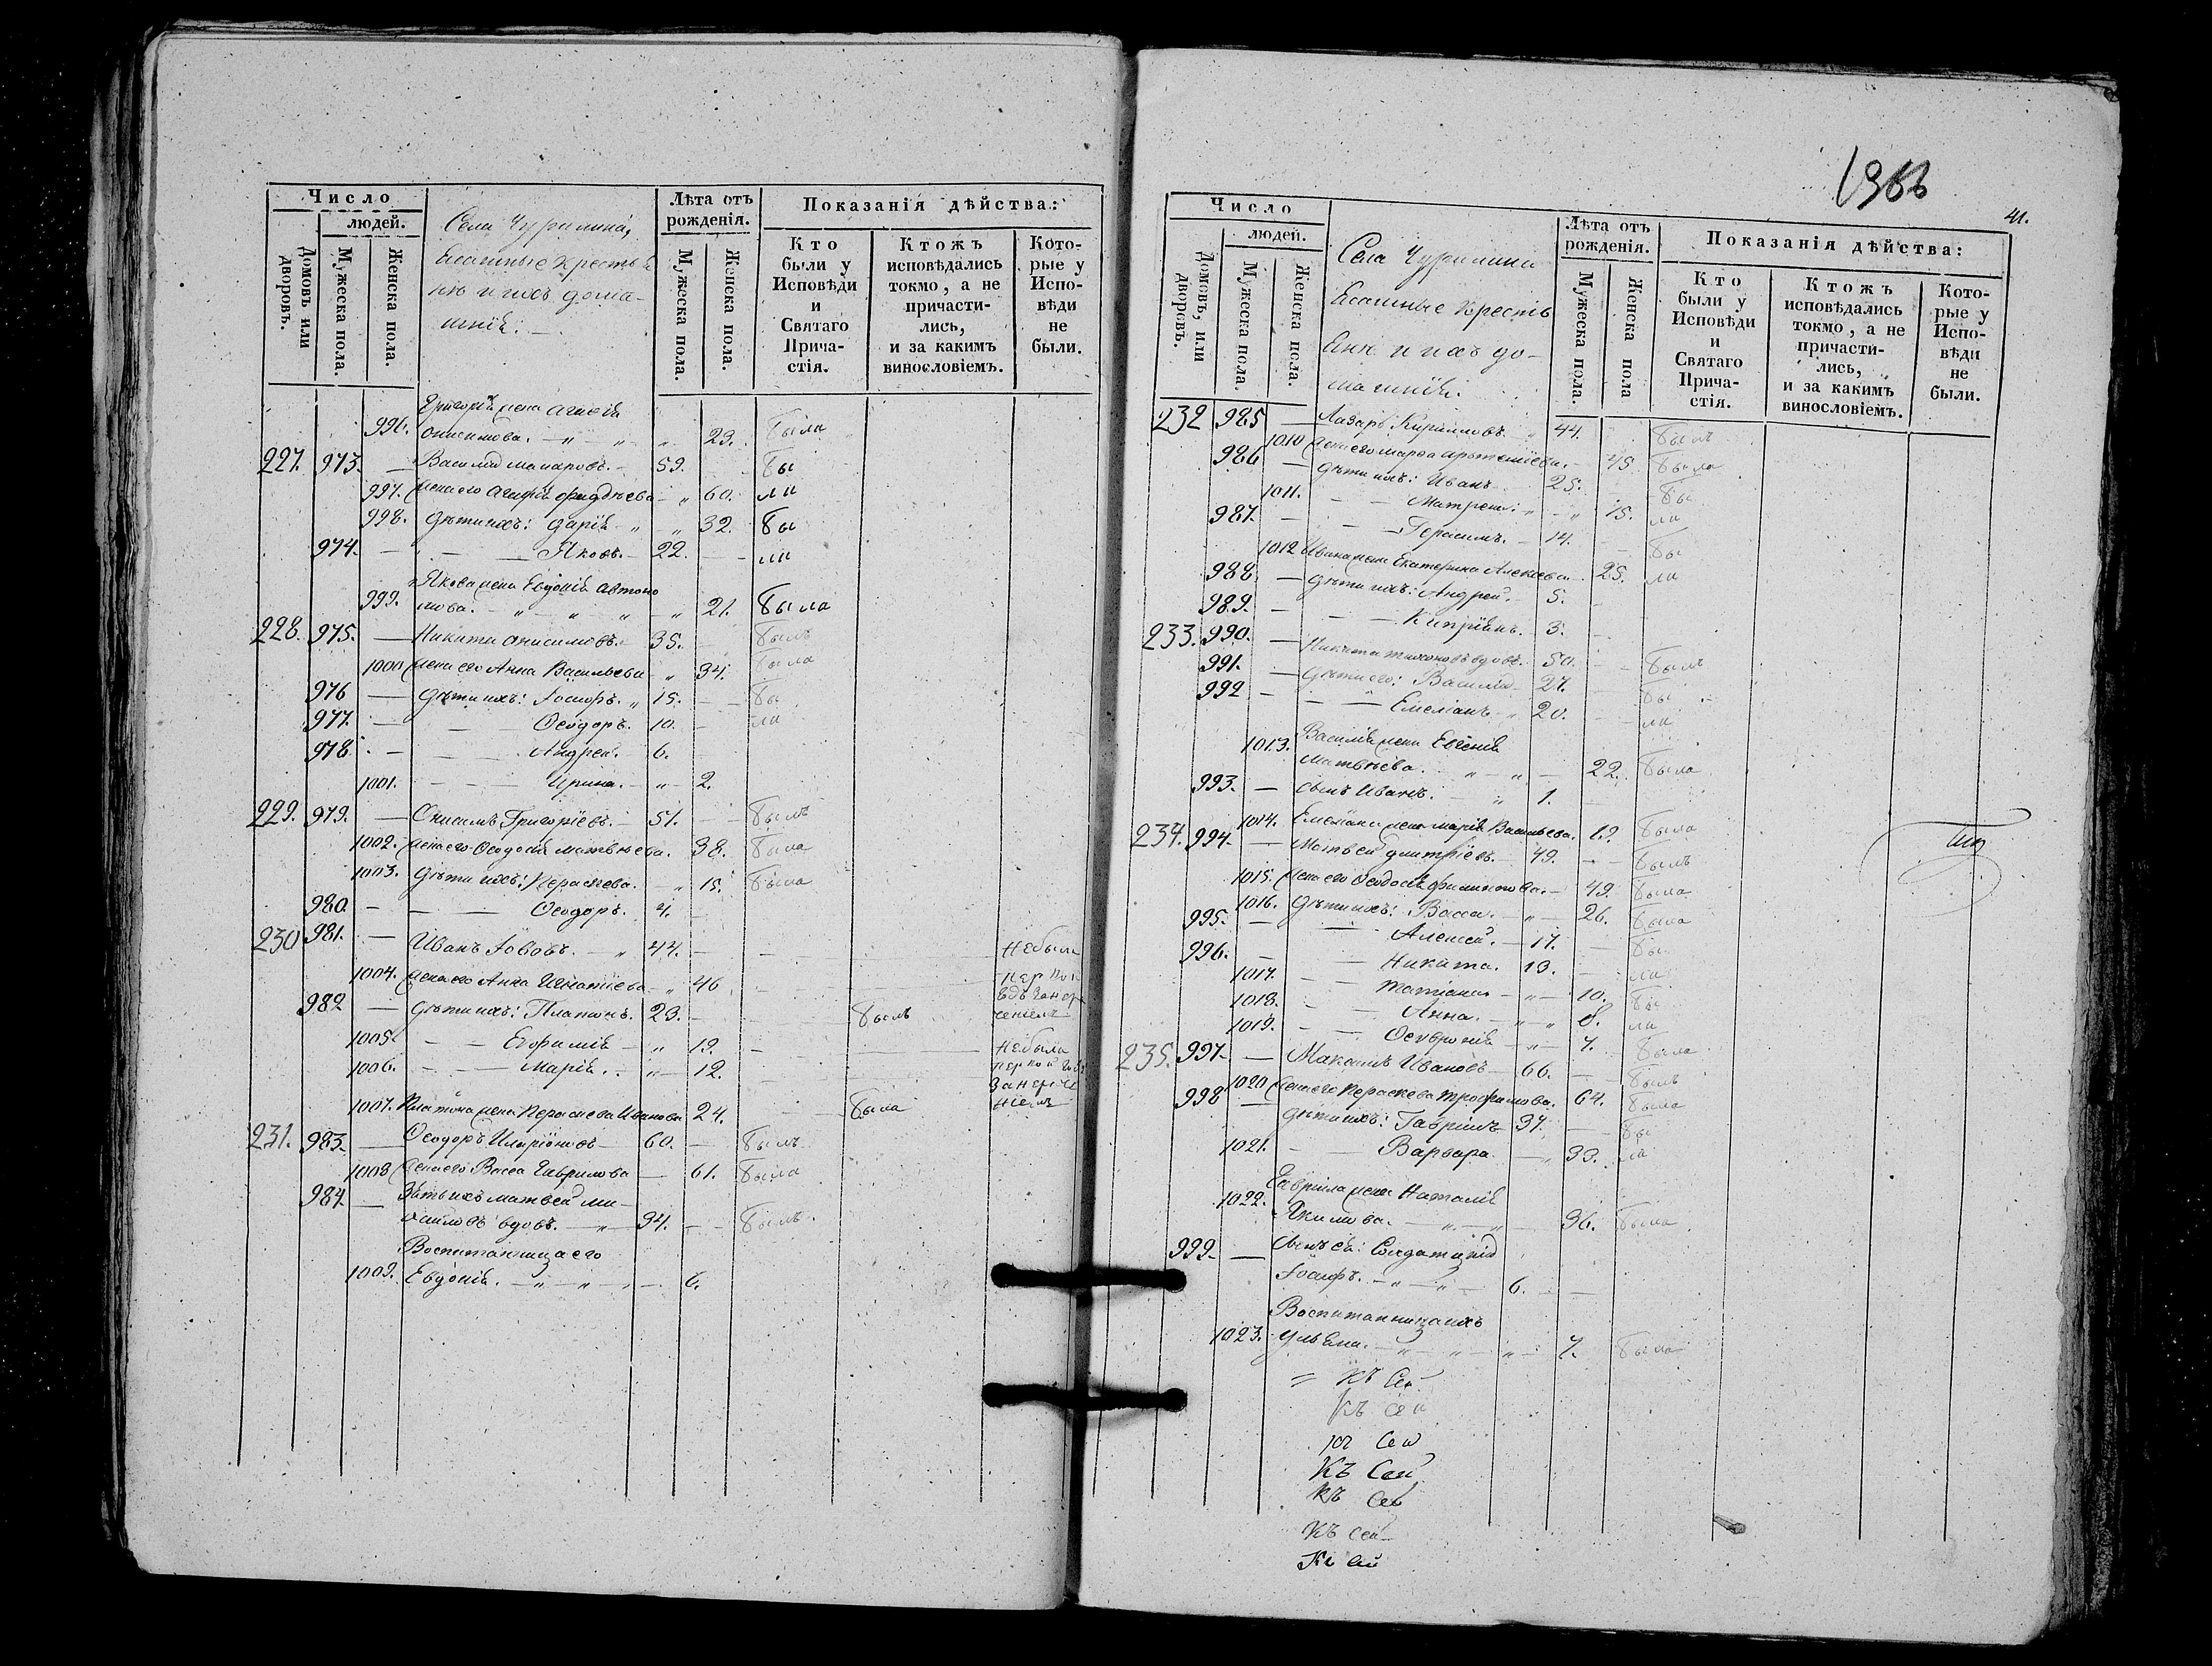 Число
людей.
Домовъ или дворовъ.
Мужеска пола.
Женска пола.
Села Чурилина,
Ясашные крестья
не и ихъ дома-
шнія:
Лѣта отъ рожденія.
Мужеска пола.
Женска пола.
Показанія дѣйства:
Кто были у Исповѣди и Святаго Причастія.
Ктожъ исповѣдались токмо, а не причастились, и за какимъ винословіемъ.
Которые у Исповѣди не были.
Григорія жена
996. Онисимова. 23. была
227. 973. Василій Макаровъ. 59. бы
997. Жена его 60. ли
998. Дѣти ихъ: Дарія 32. бы
974. Яковъ. 22. ли
Якова жена Евдокія Автоно
999. мова. 21. была
228. 975. Никита Онисимовъ. 35. былъ
1000 Жена его Анна Васильева 34. была
976 Дѣти ихъ: Іосифъ. 15. бы
977. Ѳеодоръ. 10. ли
978. Андрей. 6.
1001. Ирина. 2.
229. 979. Онисимъ Григоріевъ. 51. былъ
1002. Жена его Ѳеодосія Матвѣева. 38. была
1003. Дѣти ихъ: Параскева. 15. была
980. Ѳеодоръ. 4.
230 981. Иванъ Іововъ. 44. Небыли
1004. Жена его Анна Игнатіева 46
982 Дѣти ихъ: Платонъ. 23. былъ
1005. Евфимія 19. Небыла
1006. Марія. 12.
1007. Платона жена Параскева Иванова 24. была
231. 983. Ѳеодоръ Иларіоновъ 60. былъ
1008 Жена его Васса Гаврилова 61. была
984. Зять ихъ Матвей Ми-
хайловъ вдовъ. 34. былъ.
Воспитанница его
1009. Евдокія. 6.
41.
Число
людей.
Домовъ, или дворовъ.
Мужеска пола.
Женска пола.
Села Чурилина
Ясашные крестья
не и ихъ до-
машнія.
Лѣта отъ рожденія.
Мужеска пола.
Женска пола
Показанія дѣйства:
Кто были у Исповѣди и Святаго Причастія.
Ктожъ исповѣдались токмо, а не причастились, и за какимъ винословіемъ.
Которые у Исповѣди не были.
232 985 Лазарь Кириловъ. 44. былъ
1010 Жена его Марѳа Артеміева. 45. была
986 Дѣти ихъ: Иванъ 25. бы
1011. Матрена 15. ли
987. Герасимъ. 14. бы
1012 Ивана жена Екатерина Алексѣева 25. ли
988 Дѣти ихъ: Андрей. 5.
989. Кипріянъ. 3.
233. 990. Никита Тихоновъ вдовъ. 50. былъ
991. Дѣти его: Василій 27. бы
992 Емеліанъ 20. ли
Василія жена Евгенія
1013. Матвѣева. 22. была
993. Сынъ Иванъ. 1.
1014. Емеліана жена Марія Васильева. 19. была
234. 994. Матвей Дмитріевъ. 49. былъ
1015. Жена его Ѳеодосія Филимонова. 49. была
1016. Дѣти ихъ: Васса. 26. была
995. Алексей. 17. бы
996. Никита. 13. ли
1017. Татіана 10. бы
1018. Анна. 8. ли
1019. Ѳевронія 7. была
235. 997. Максимъ Ивановъ 66. былъ
1020 Жена его Параскева Трофимова. 64. была
998 Дѣти ихъ: Гавріилъ 37. бы
1021. Варвара 33. ли
Гавріила жена Наталія
1022. Якимова. 36. была
999. Сынъ ея: Солдатскій
Іосифъ. 6.
Воспитанница ихъ
1023. Ульяна. 7. была
Къ Сей
Къ Сей
Къ Сей
Къ Сей
Къ Сей
Къ Сей
Къ Сей